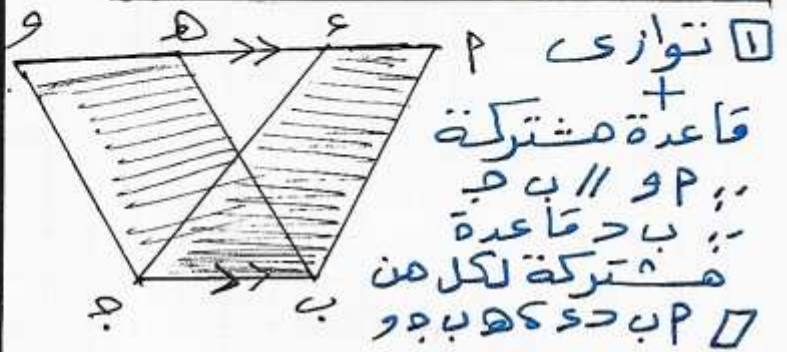 و ه ء م
١ توازى
+
قاعدة مشتركة
∵ م و // ب ج
∵ ب ج قاعدة
مشتركة لكل من
▱ م ب ج ء ، ه ب ج و
ج ب